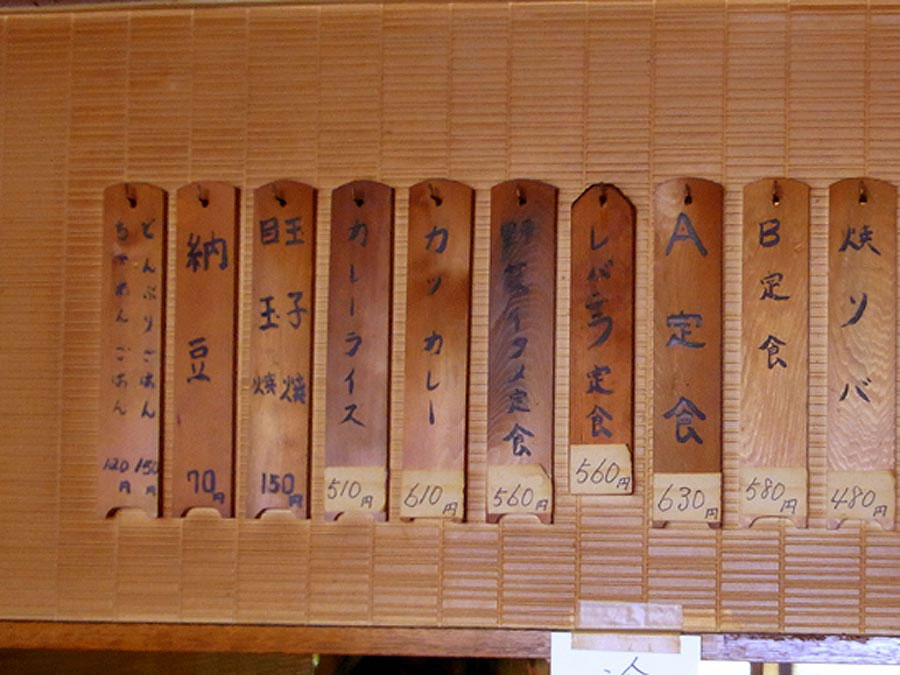 焼ソバ
480円
B定食
580円
A定食
630円
レバニラ定食
560円
野菜イタメ定食
560円
カツカレー
610円
カレーライス
510円
玉子焼
目玉焼
150円
納豆
70円
どんぶりごはん
150円
ちゃわんごはん
120円